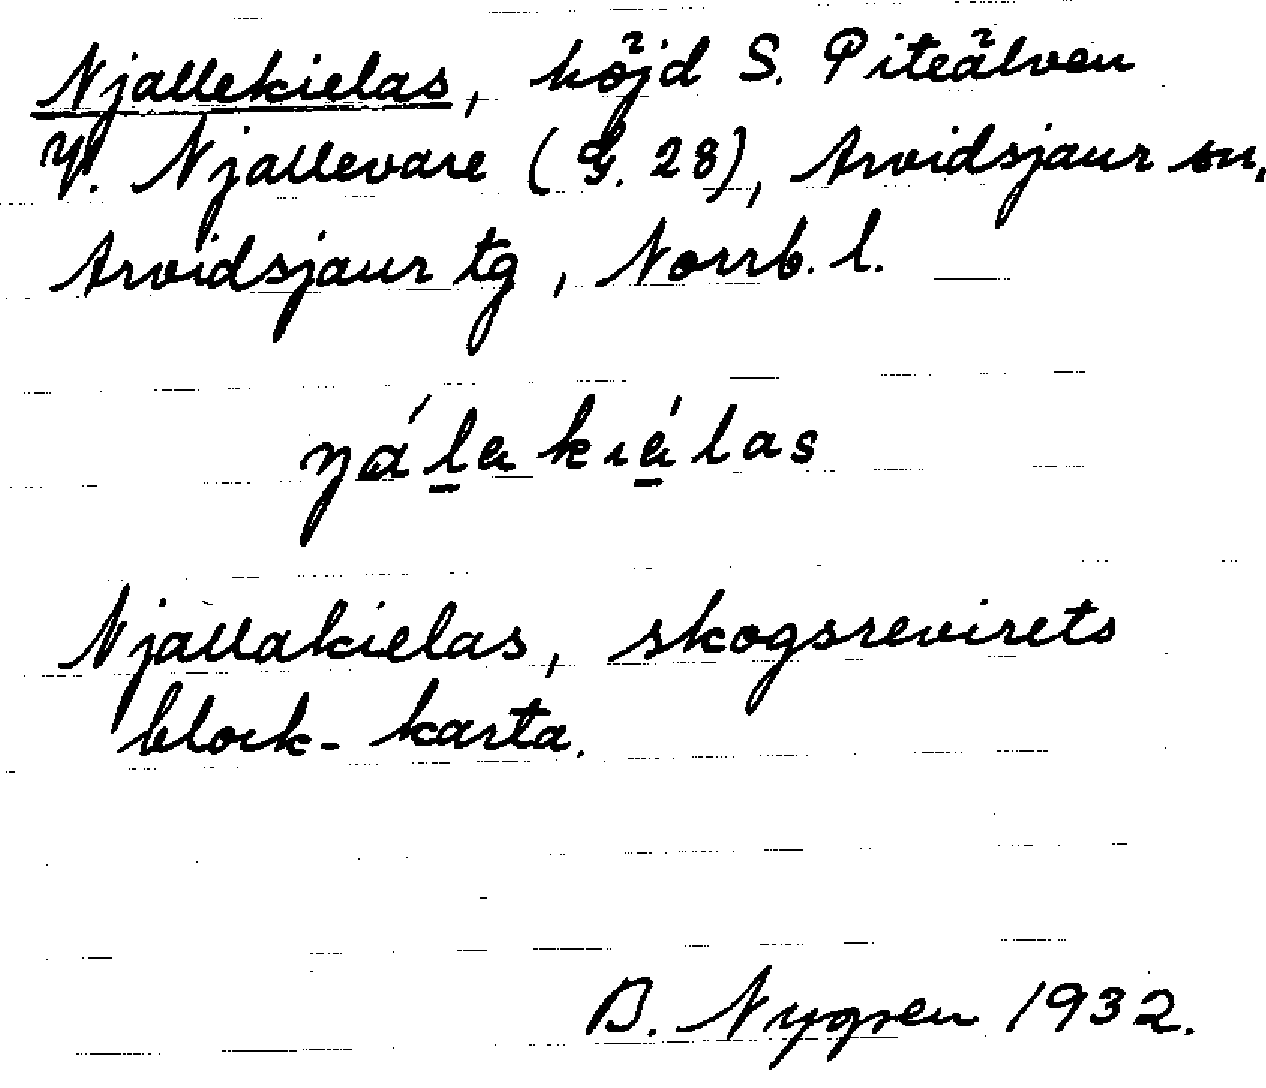 Njallekielas, höjd S. Piteälven
V. Njallevare (G. 28), Arvidsjaur sn,
Arvidsjaur tg, Norrb. l.
Njallakielas, skogsrevirets
block-karta.
B. Nygren 1932.